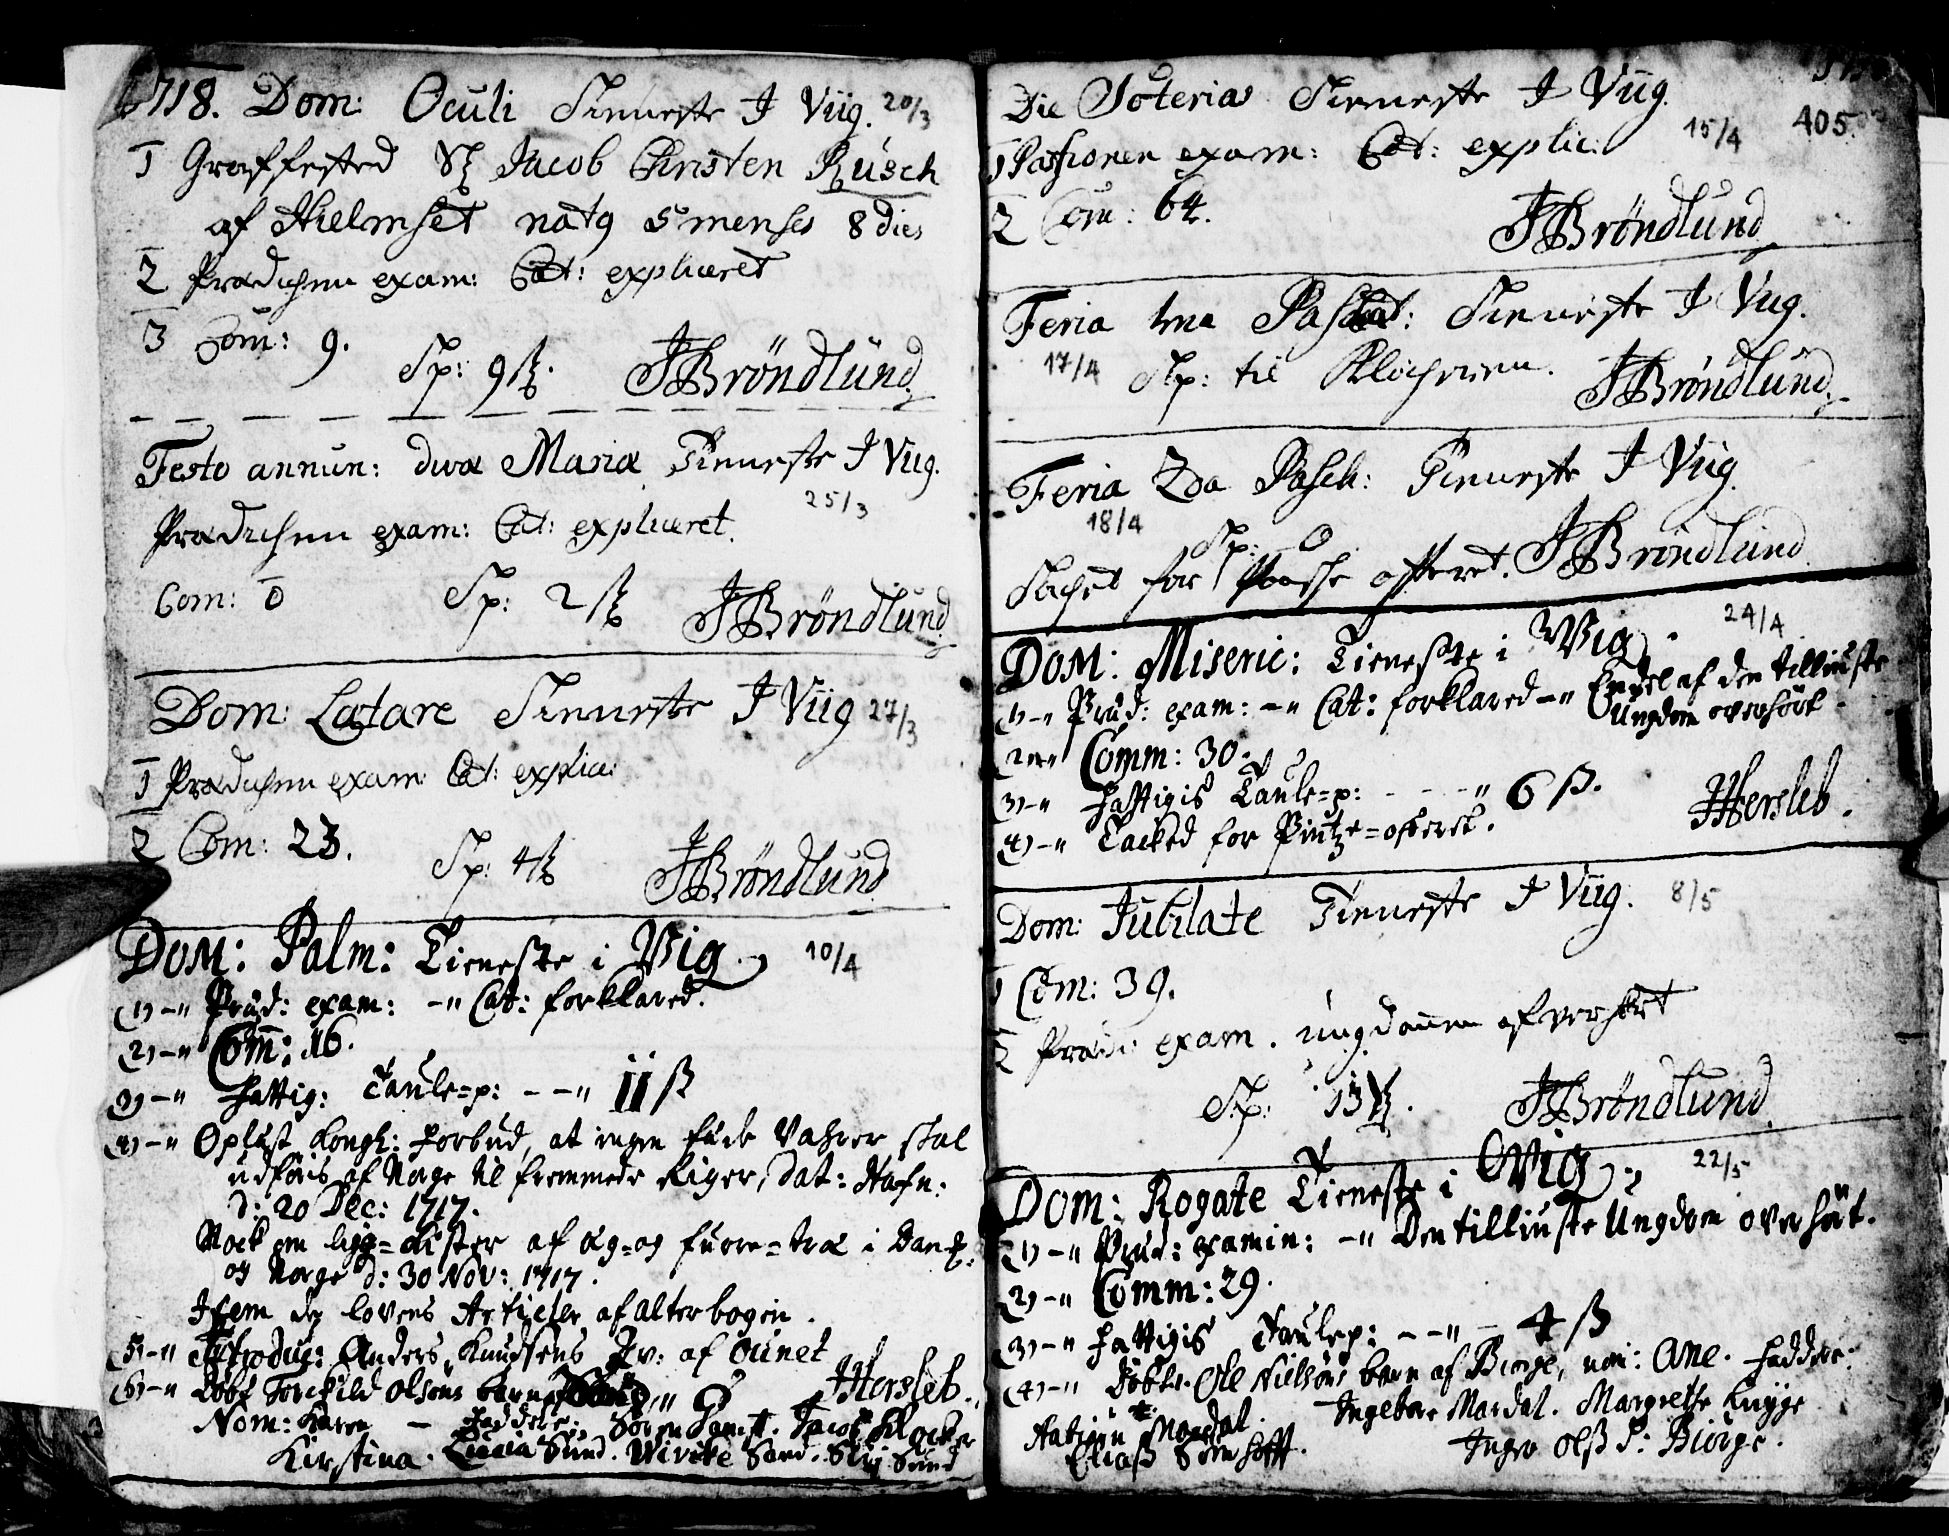 1718. Dom: Oculi Tieneste I Viig. 20/3
1 Graffested Jacob Christen Rusch
af Hielmset nat9 5 menses 8 dies
2 Prædichen exam: Cat: expliceret
3 Com: 9.
Sp: 9 ß. JBröndlund
Festo annun: divæ Mariæ Tieneste I Viig.
25/3
Prædichen exam: Cat: expliceret.
Com: 0 Sp: 2 ß JBröndlund
Dom: Lætare Tieneste I Viig 27/3
1 Prædichen exam: Cat: explice:
2 Com: 23.
Sp: 4 ß JBröndlund
DOM: Palm: Tieneste i Vig. 10/4
(1) -" Præd: exam: -" Cat: forklared.
(2) -" Com̄: 16.
(3) -" fattig: Taule=p: - - " 11 ß
(4) -" Oplæst Kongl: forbud, at ingen Vahrer skal
udføris af Norge til fremmede Riger, dat: Hafn:
d: 20 Dec: 1717.
Nock om af og i Dan:
og Norge d: 30 Nov: 1717.
Item lovens Articler af alterbogen.
(5) -" Introduc: Anders Knudsens af
(6) -" Døbt Torchild Olsøns barn JHersleb.
Nom: Karen - faddere: Sören Jacob Klocker
Kirstina. Sund. Wiveke Sund. Sund
Die Soterias Tieneste I Viig. 15/4 405.
1 Passionen exam: Cat: explic:
2 Com: 64. JBröndlund
Feria 1ma Pasch: Tieneste I Viig.
17/4 Sp: til Klocheren. JBröndlund
Feria 2da Pasch: Tieneste I Viig
18/4 Sp: 0
Tachet for offeret. JBröndlund
DOM: Miseric: Tieneste i Vig. 24/4
(1) -" Præd: exam: -" Cat: forklared -" Endel af den tilliuste
Ungdom overhört.
(2) -" Comm: 30.
(3) -" fattigis Taule=p: - - - " 6 ß.
(4) -" Tacked for =offeret. JHersleb.
Dom: Jubilate Tieneste I Viig. 8/5
1 Com: 39.
2 Præd: exam. ungdommen ofverhört
Sp: 13 ß. JBröndlund
DOM: Rogate Tieneste i Vig. 22/5
(1) -" Præd: examin: -" Den tilliuste Ungdom overhört.
(2) -" Comm: 29.
(3) -" fattigis Taulep: - - " - 4 ß
(4) -" Döbt Ole Nielsöns barn af Biorge, nom: Ane. Faddere:
Mardal. Ingebor Mardal. Margrethe
Elias Ingeb Ols D: Biörge.